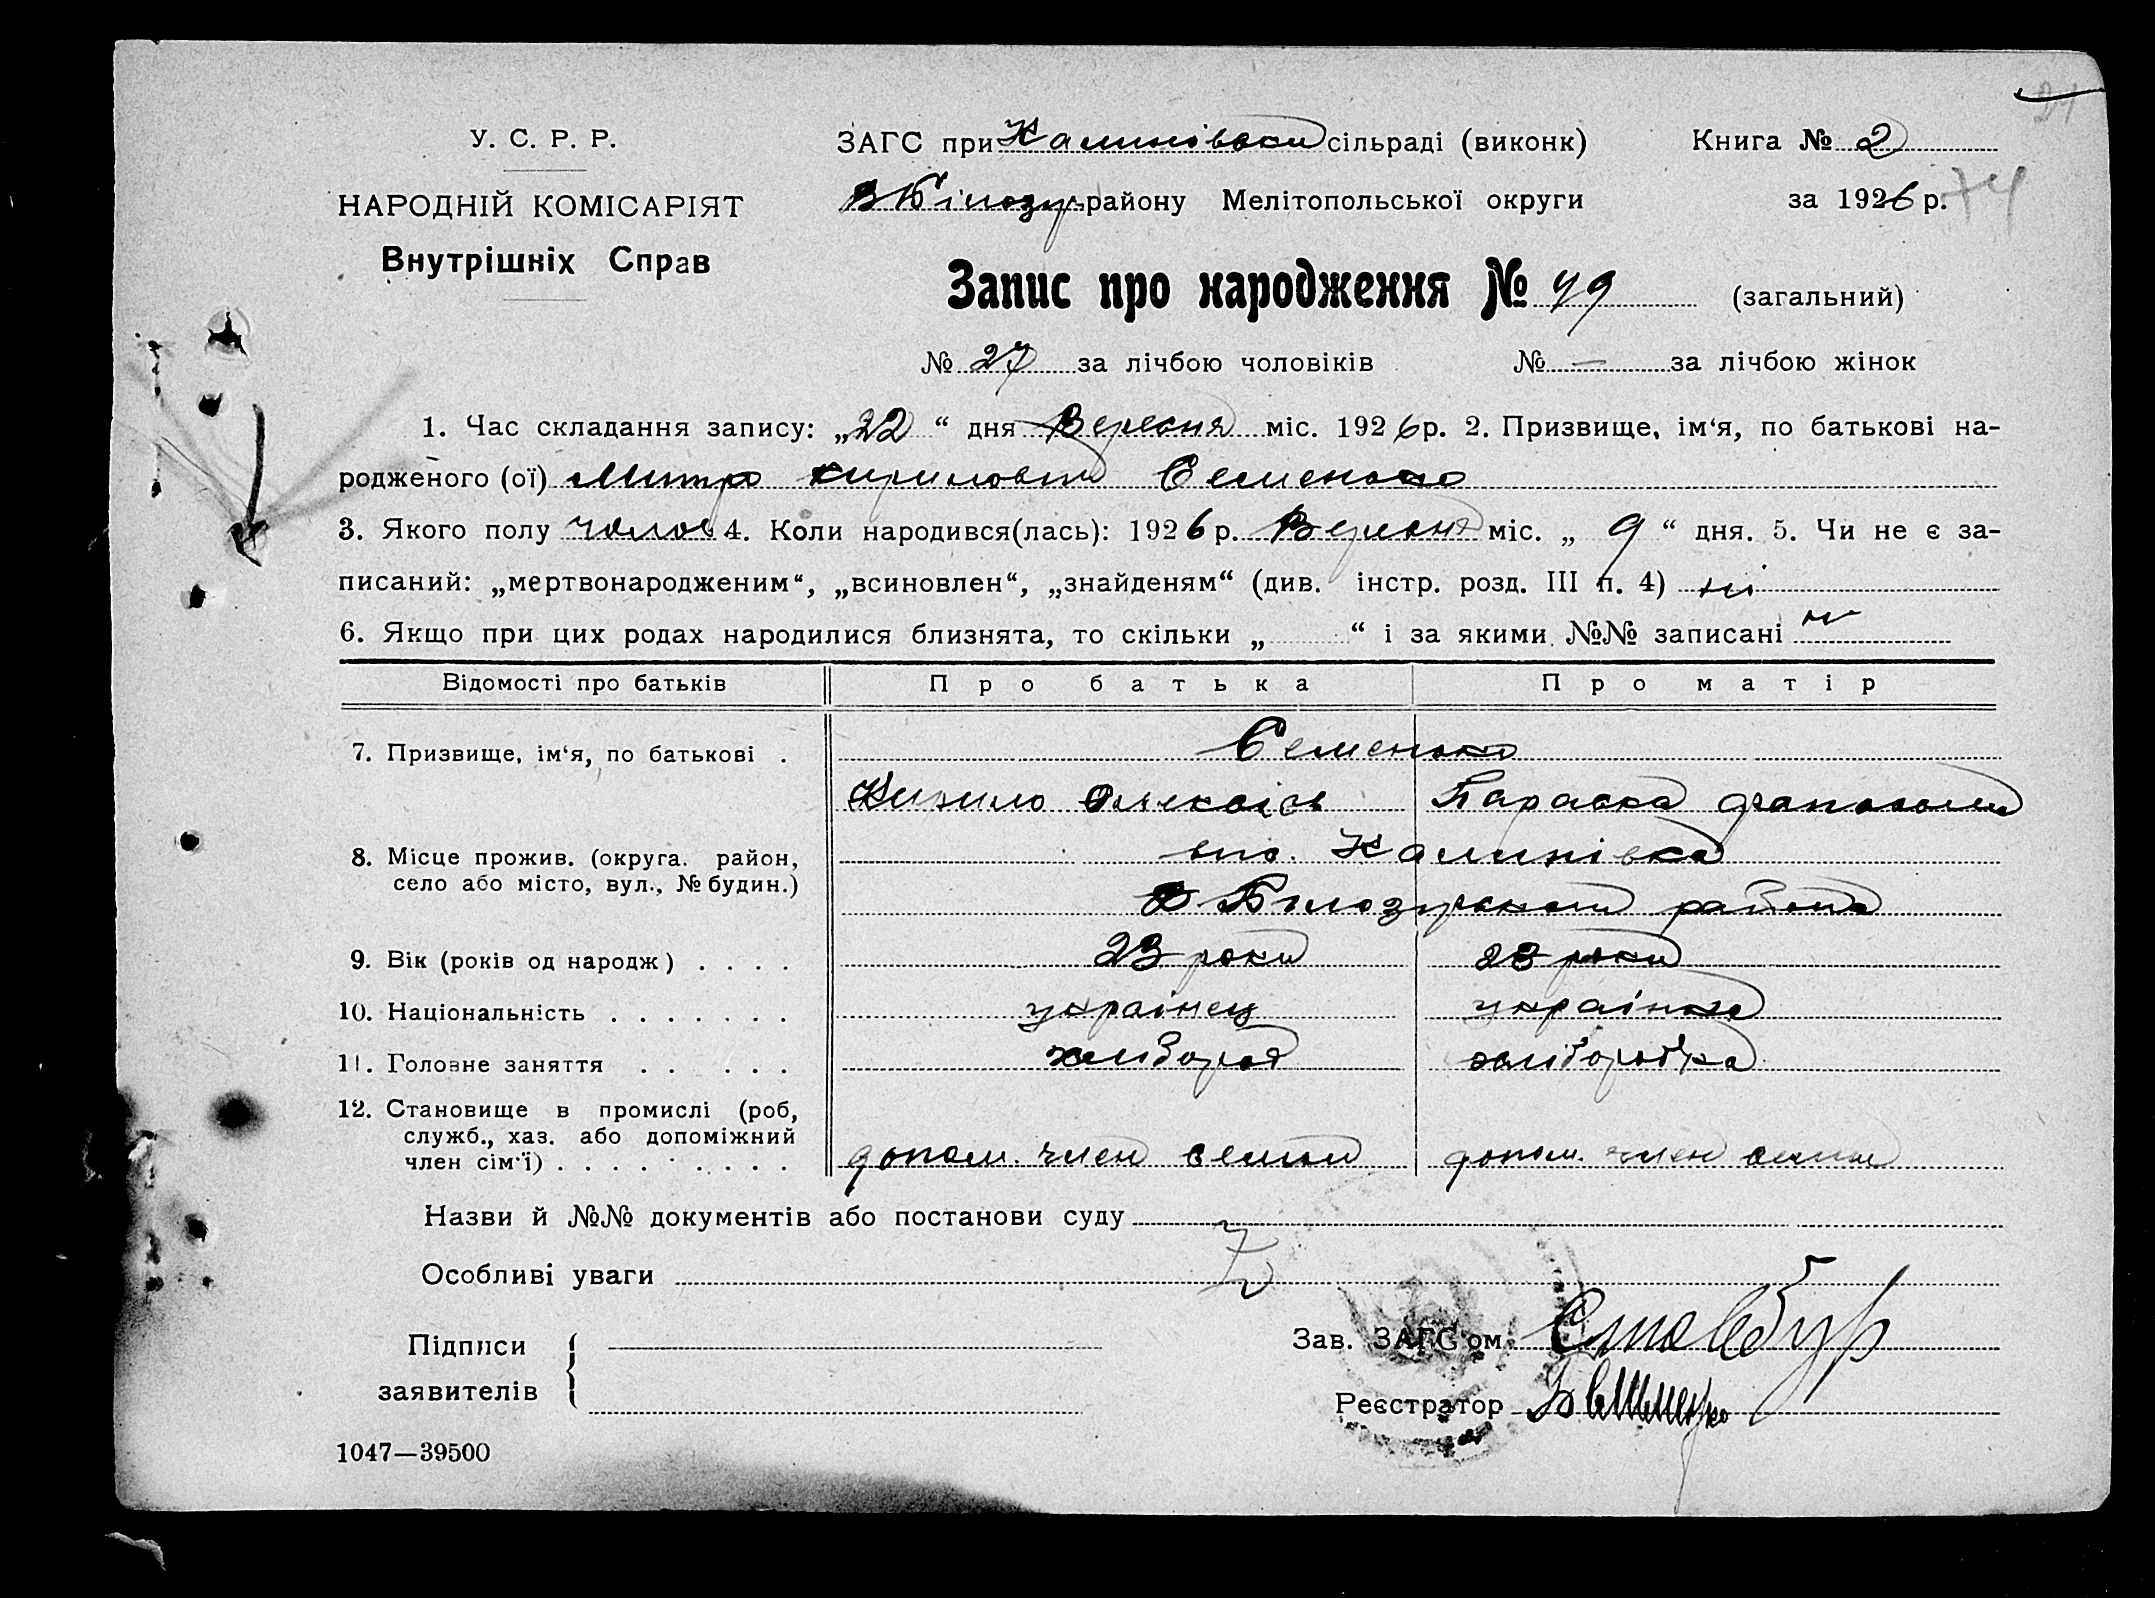 У. С. Р. Р.
НАРОДНІЙ КОМІСАРІЯТ
Внутрішніх Справ
ЗАГС при Калинівськи сільраді (виконк)
Книга № 2
В Білозур. району Мелітопольської округи
за 1926 р.
74
Запис про народження № 49 (загальний)
№ 27 за лічбою чоловіків № — за лічбою жінок
1. Час складання запису: „22“ дня Вересня міс. 1926р. 2. Призвище, ім‘я, по батькові на-
родженого (ої) Митро Кирилович Семенько
3. Якого полу чолов 4. Коли народився(лась): 1926 р. Вересня міс. „ 9 “ дня. 5. Чи не є за-
писаний: „мертвонародженим“, „всиновлен“, „знайденям“ (див. інстр. розд. III п. 4) ні
6. Якщо при цих родах народилися близнята, то скільки „ “ і за якими №№ записані
Відомості про батьків Про батька Про матір
7. Призвище, ім‘я, по батькові . Семенько
Кирило Олексієв Параска
8. Місце прожив. (округа. район,
село або місто, вул., № будин.)
Калинівка
В Білозурського района
9. Вік (років од народж) . . . . 23 роки 23 роки
10. Національність . . . . . . . українец українка
11. Головне заняття . . . . . хлібороб хліборобка
12. Становище в промислі (роб,
служб., хаз. або допоміжний
член сім‘ї) . . . . . . . . . допом. член семьи допом. член семьи
Назви й №№ документів або постанови суду
Особливі уваги
Підписи
заявителів
Зав. ЗАГС‘ом Стовбур
Реєстратор
1047—39500